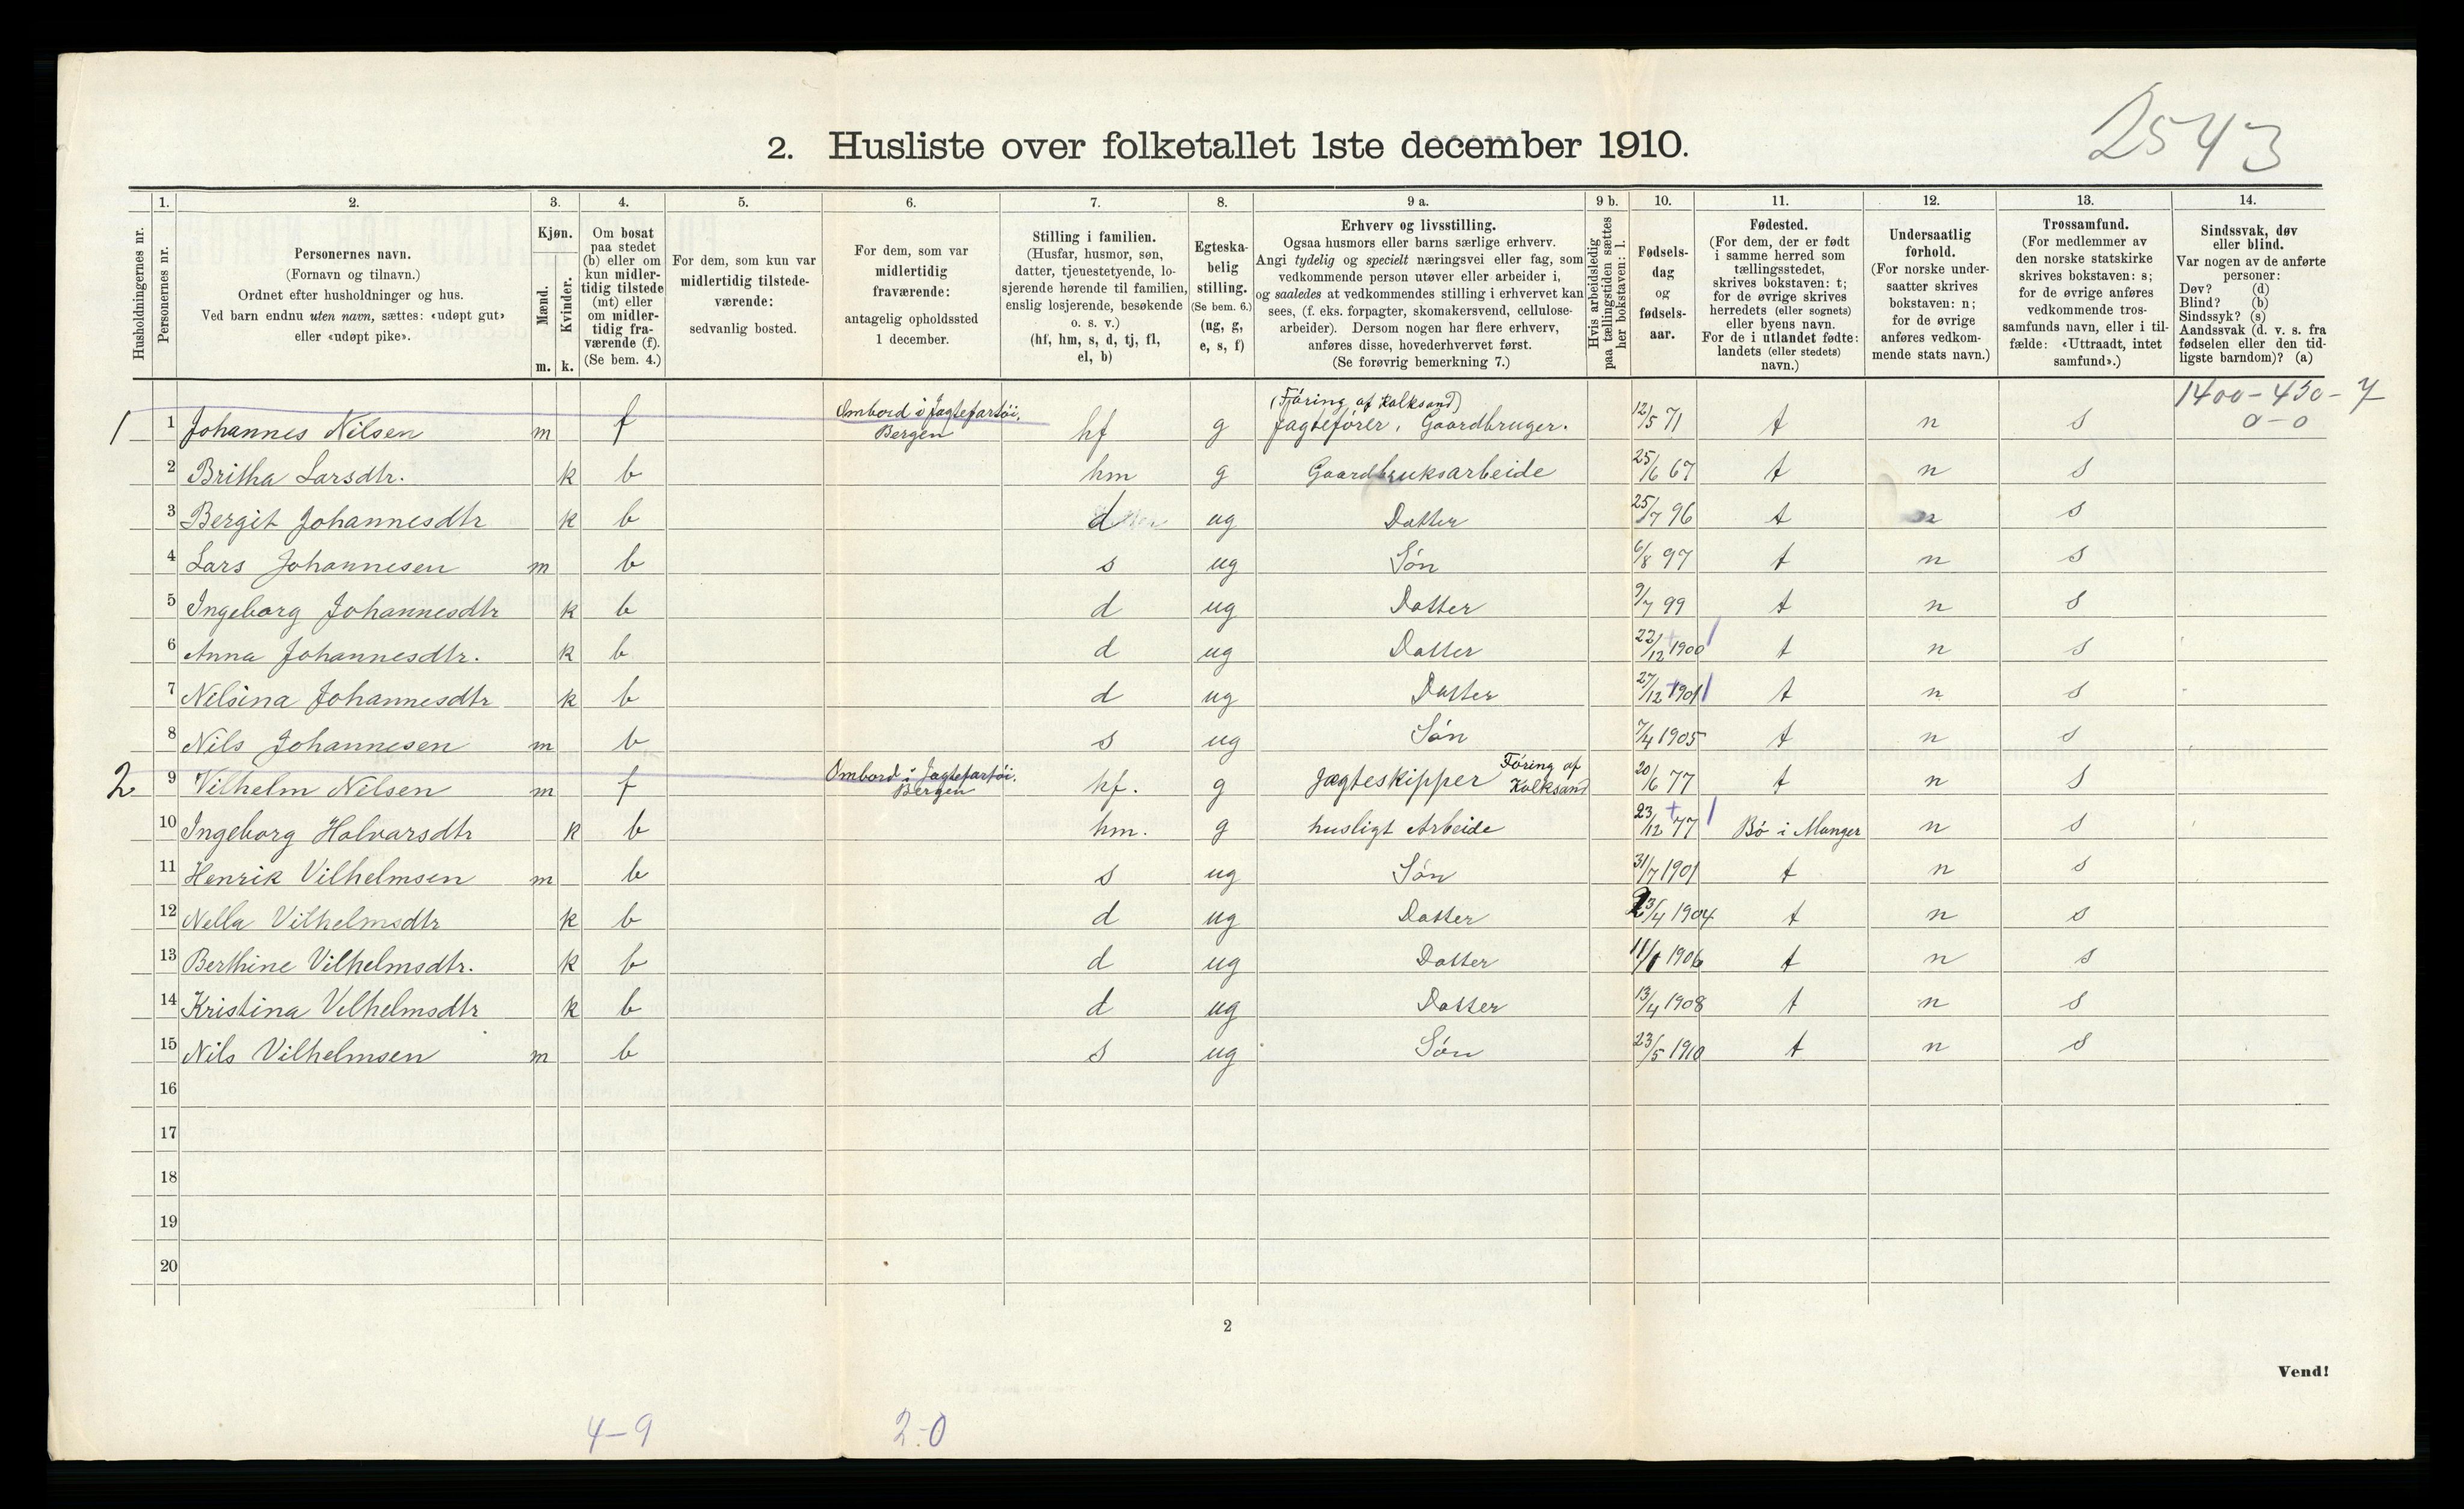 2543
2. Husliste over folketallet 1ste december 1910.
Husholdningernes nr.
1. Personernes nr.
2. Personernes navn.
(Fornavn og tilnavn.)
Ordnet efter husholdninger og hus.
Ved barn endnu uten navn, sættes: «udøpt gut»
eller «udøpt pike».
3. Kjøn.
Mænd. Kvinder.
m. k.
4. Om bosat
paa stedet
(b) eller om
kun midler-
tidig tilstede
(mt) eller
om midler-
tidig fra-
værende (f).
(Se bem. 4.)
5. For dem, som kun var
midlertidig tilstede-
værende:
sedvanlig bosted.
6. For dem, som var
midlertidig
fraværende:
antagelig opholdssted
1 december.
7. Stilling i familien.
(Husfar, husmor, søn,
datter, tjenestetyende, lo-
sjerende hørende til familien,
enslig losjerende, besøkende
o. s. v.)
(hf, hm, s, d, tj, fl,
el, b)
8. Egteska-
belig
stilling.
(Se bem. 6.)
(ug, g,
e, s, f)
9 a. Erhverv og livsstilling.
Ogsaa husmors eller barns særlige erhverv.
Angi tydelig og specielt næringsvei eller fag, som
vedkommende person utøver eller arbeider i,
og saaledes at vedkommendes stilling i erhvervet kan
sees, (f. eks. forpagter, skomakersvend, cellulose-
arbeider). Dersom nogen har flere erhverv,
anføres disse, hovederhvervet først.
(Se forøvrig bemerkning 7.)
9 b. Hvis arbeidsledig
paa tællingstiden sættes
her bokstaven: l.
10. Fødsels-
dag
og
fødsels-
aar.
11. Fødested.
(For dem, der er født
i samme herred som
tællingsstedet,
skrives bokstaven: t;
for de øvrige skrives
herredets (eller sognets)
eller byens navn.
For de i utlandet fødte:
landets (eller stedets)
navn.)
12. Undersaatlig
forhold.
(For norske under-
saatter skrives
bokstaven: n;
for de øvrige
anføres vedkom-
mende stats navn.)
13. Trossamfund.
(For medlemmer av
den norske statskirke
skrives bokstaven: s;
for de øvrige anføres
vedkommende tros-
samfunds navn, eller i til-
fælde: «Uttraadt, intet
samfund».)
14. Sindssvak, døv
eller blind.
Var nogen av de anførte
personer:
Døv? (d)
Blind? (b)
Sindssyk? (s)
Aandssvak (d. v. s. fra
fødselen eller den tid-
ligste barndom)? (a)
1400-450-7
0-0
1 1 Johannes Nilsen m f Ombord i Jagtefartöi. Bergen hf g (Föring af Kalksand) Jagtefører, Gaardbruger. 12/5 71 t n s
2 Britha Larsdtr. k b hm g Gaardbruksarbeide 25/6 67 t n s
3 Bergit Johannesdtr k b d ug Datter 25/7 96 t n s
4 Lars Johannesen m b s ug Sön 6/8 97 t n s
5 Ingeborg Johannesdtr k b d ug Datter 9/7 99 t n s
6 Anna Johannesdtr. k b d ug Datter 22/12 1900 t n s
7 Nelsina Johannesdtr k b d ug Datter 27/12 1901 t n s
8 Nils Johannesen m b s ug Sön 7/4 1905 t n s
2 9 Vilhelm Nilsen m f Ombord i Jagtefartöi. Bergen hf. g Jægteskipper Föring af Kalksand 20/6 77 t n s
10 Ingeborg Halvarsdtr k b hm. g husligt Arbeide 23/12 77 Bö i Manger n s
11 Henrik Vilhelmsen m b s ug Sön 31/7 1901 t n s
12 Nella Vilhelmsdtr k b d ug Datter 23/4 1904 t n s
13 Berthine Vilhelmsdtr. k b d ug Datter 11/1 1906 t n s
14 Kristina Vilhelmsdtr k b d ug Datter 13/4 1908 t n s
15 Nils Vilhelmsen m b s ug Sön 23/5 1910 t n s
16
17
18
19
20
2
Vend!
4-9 2-0